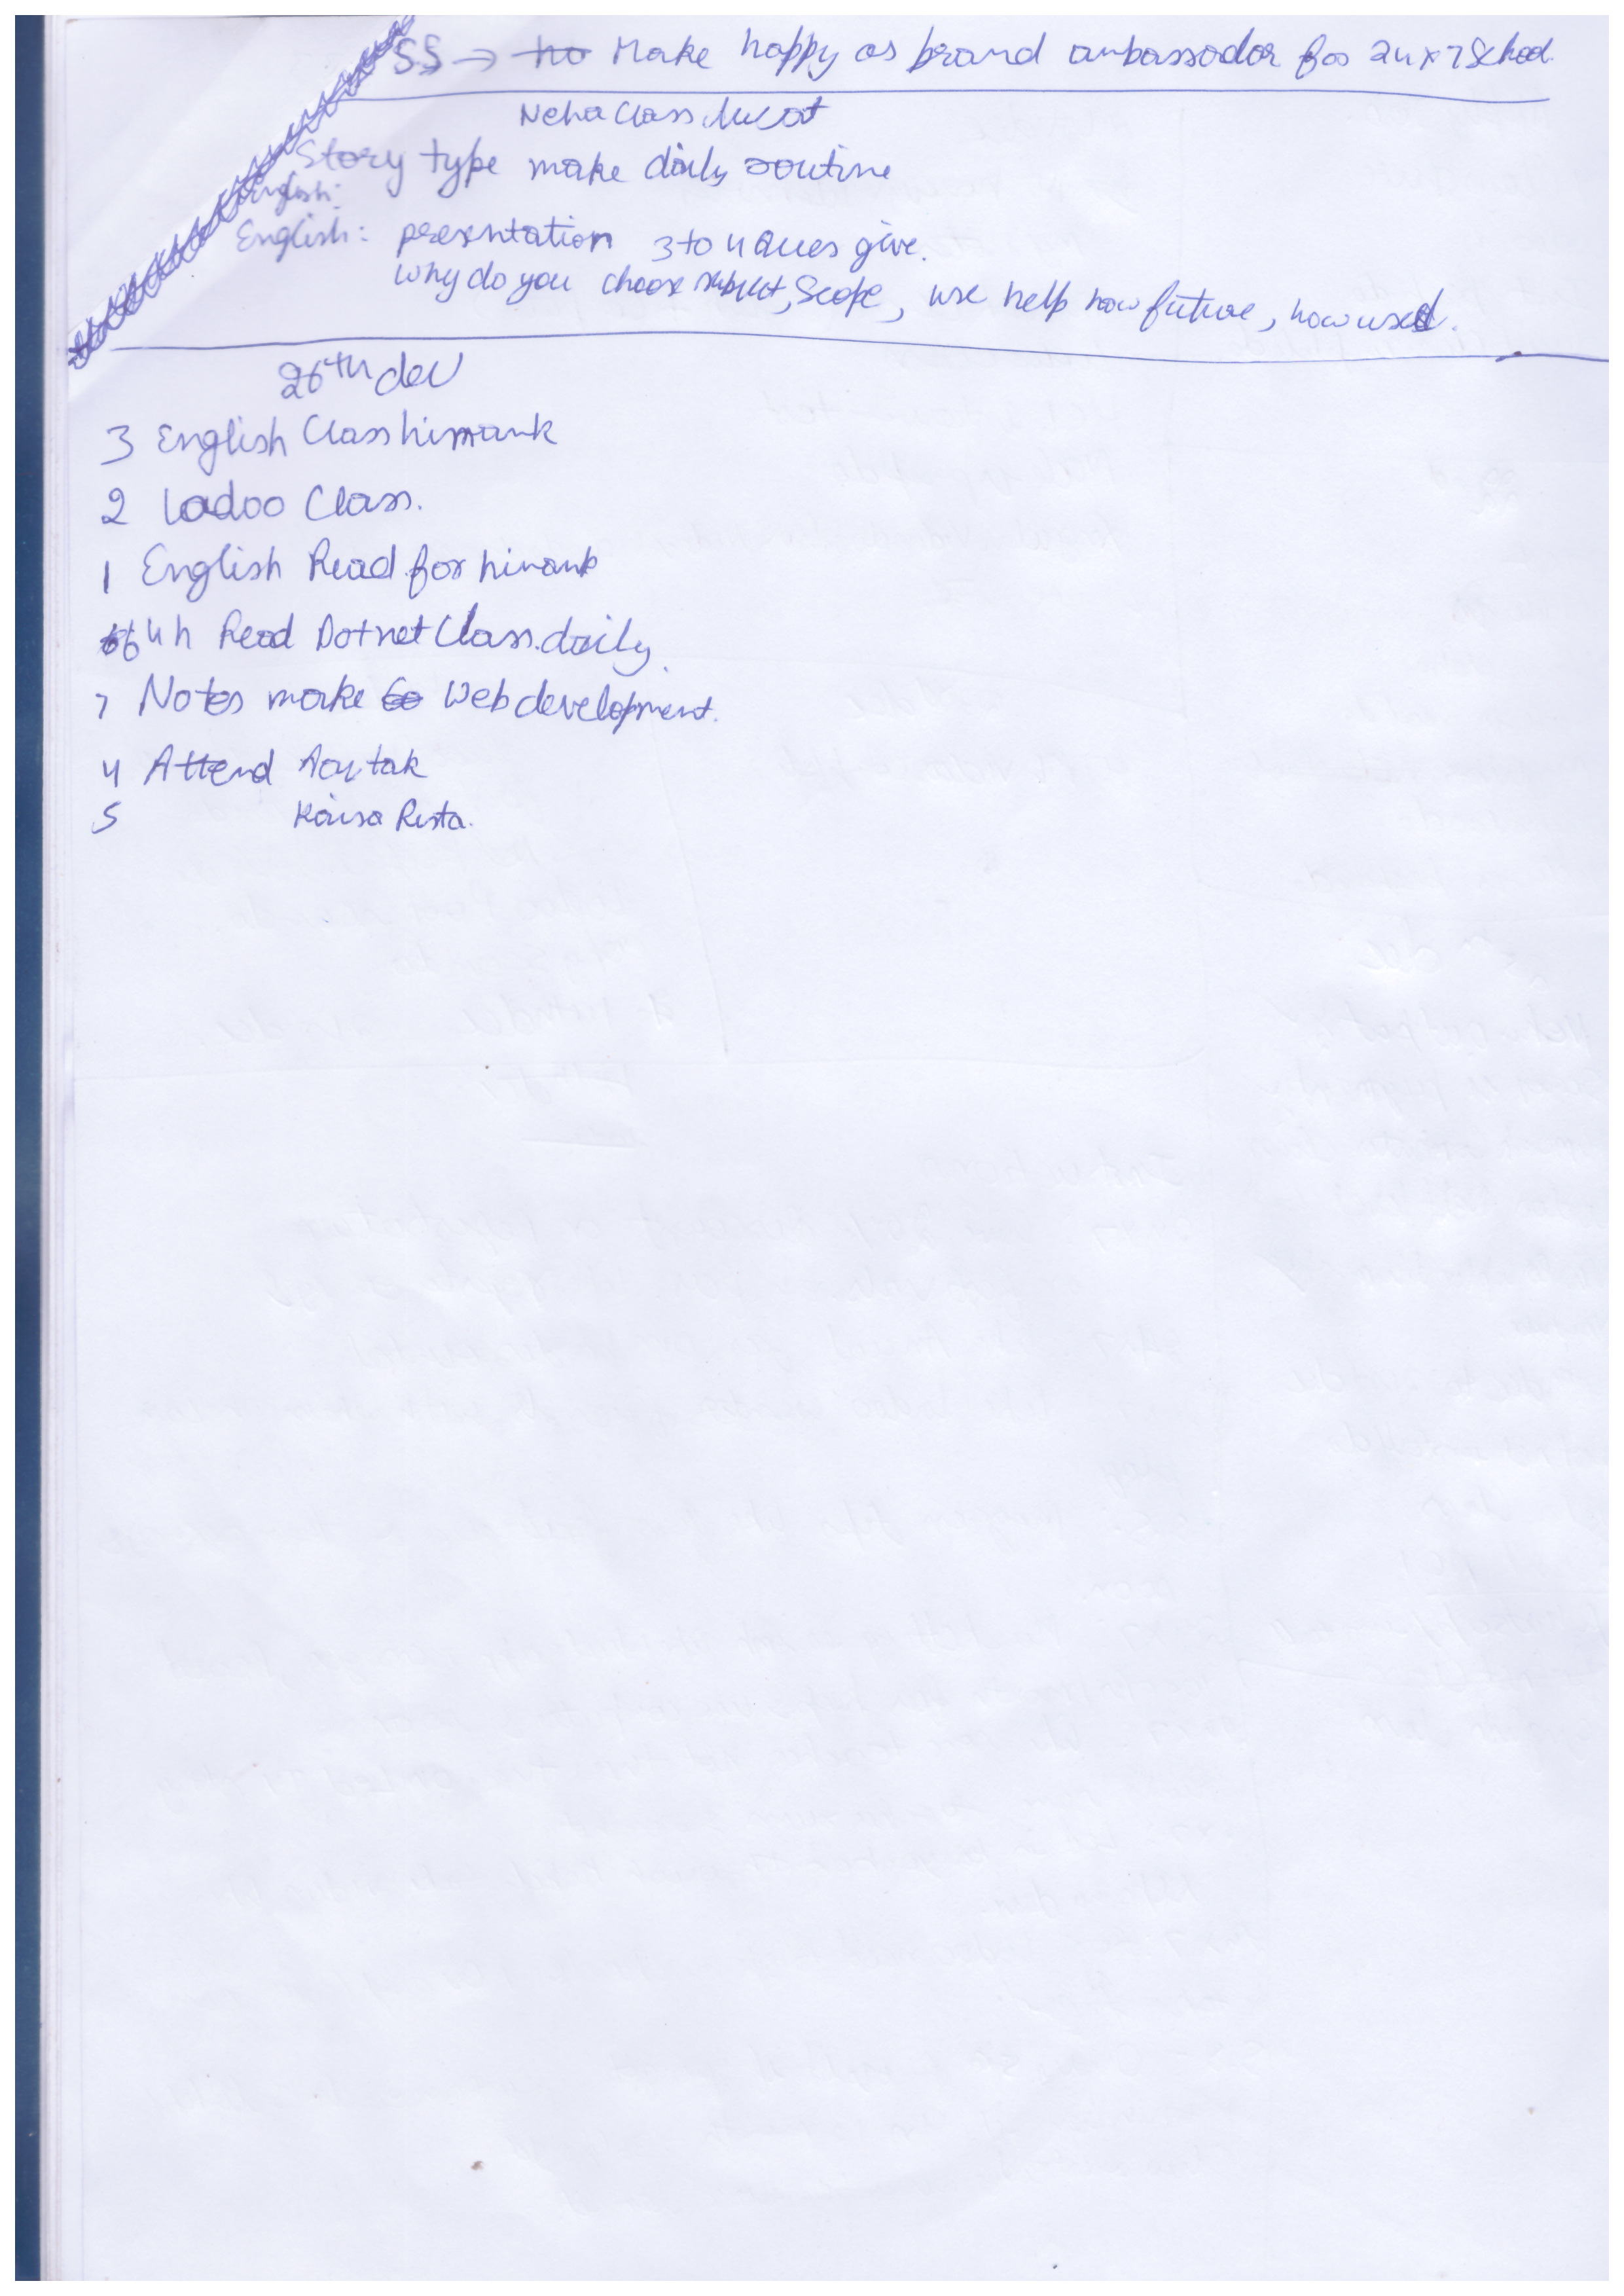 SS → Make happy as brand ambassador for 24x7 School.
Neha Class
Story type make daily routine
English:
English: presentation 3 to 4 Ques give.
Why do you choose subject, Scope, use help how future, how used.
26th dec
3 English Class himank
2 ladoo Class.
1 English Read for himank
6 4h Read Dotnet Class. daily.
7 Notes make Web development.
4 Attend
5